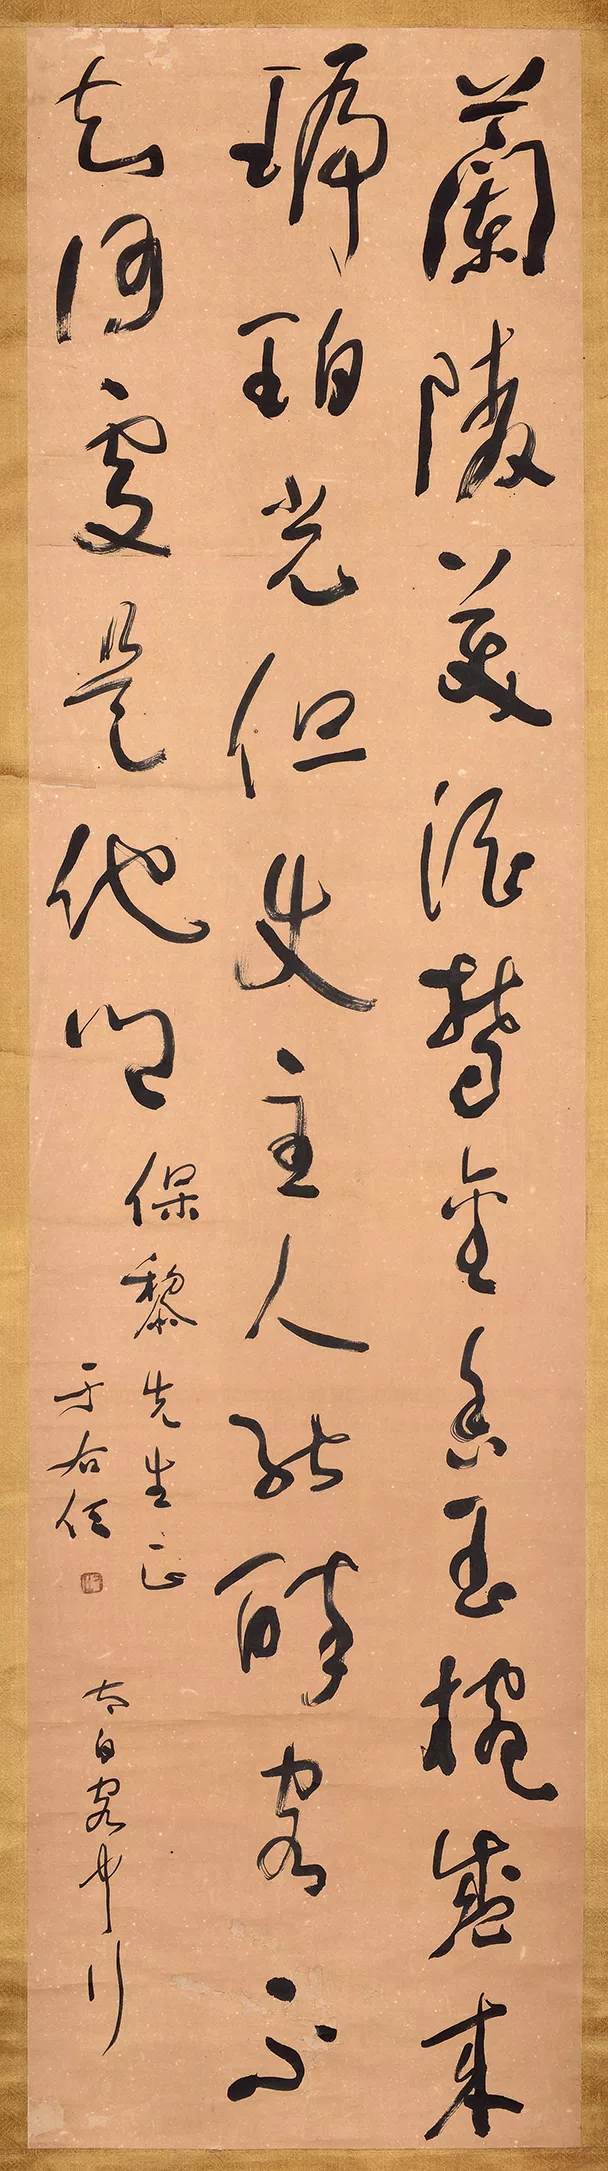 蘭陵美酒鬱金香玉椀盛來
琥珀光但使主人能醉客不
知何處是他鄉
保黎先生正
于右任
太白客中行